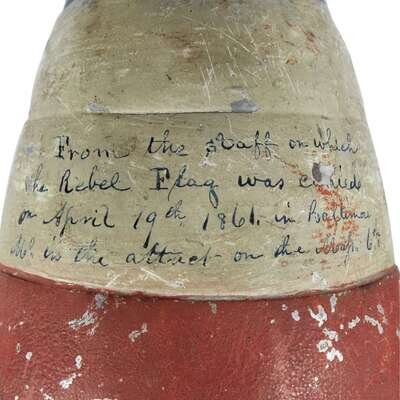 From the staff on which
the Rebel Flag was carried
on April 19th 1861. in Baltimore
Md. in the attack on the Mass. 6th